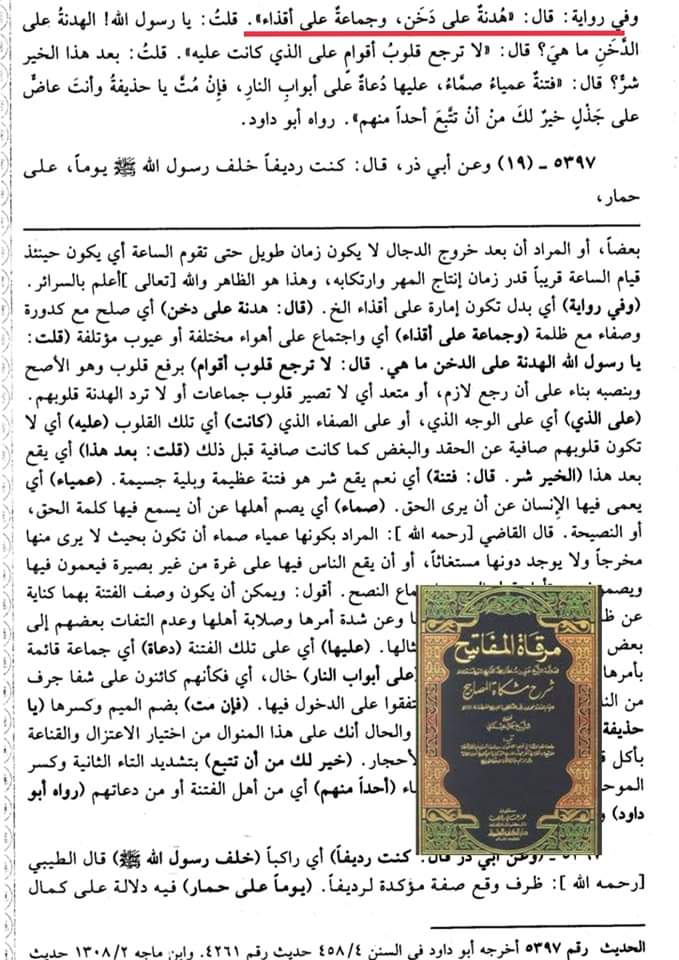 وفي رواية: قال: «هُدنةٌ على دَخَن، وجماعةٌ على أقذاء». قلتُ: يا رسول الله! الهدنةُ على
الدَّخَنِ ما هيَ؟ قال: «لا ترجع قلوبُ أقوامٍ على الذي كانت عليه». قلتُ: بعد هذا الخير
شرٌّ؟ قال: «فتنةٌ عمياءُ صمَّاءُ، عليها دُعاةٌ على أبوابِ النارِ، فإنْ مُتَّ يا حذيفةُ وأنتَ عاضٌّ
على جَذْلٍ خيرٌ لكَ منْ أنْ تتَّبعَ أحداً منهم». رواه أبو داود.
٥٣٩٧ ـ (١٩) وعن أبي ذر، قال: كنت رديفاً خلف رسول الله ﷺ يوماً، على
حمار،
بعضاً، أو المراد أن بعد خروج الدجال لا يكون زمان طويل حتى تقوم الساعة أي يكون حينئذ
قيام الساعة قريباً قدر زمان إنتاج المهر وارتكابه، وهذا هو الظاهر والله [تعالى] أعلم بالسرائر.
(وفي رواية) أي بدل تكون إمارة على أقذاء الخ. (قال: هدنة على دخن) أي صلح مع كدورة
وصفاء مع ظلمة (وجماعة على أقذاء) أي واجتماع على أهواء مختلفة أو عيوب مؤتلفة (قلت:
يا رسول الله الهدنة على الدخن ما هي. قال: لا ترجع قلوب أقوام) برفع قلوب وهو الأصح
وبنصبه بناء على أن رجع لازم، أو متعد أي لا تصير قلوب جماعات أو لا ترد الهدنة قلوبهم.
(على الذي) أي على الوجه الذي، أو على الصفاء الذي (كانت) أي تلك القلوب (عليه) أي لا
تكون قلوبهم صافية عن الحقد والبغض كما كانت صافية قبل ذلك (قلت: بعد هذا) أي يقع
بعد هذا (الخير شر. قال: فتنة) أي نعم يقع شر هو فتنة عظيمة وبلية جسيمة. (عمياء) أي
يعمى فيها الإنسان عن أن يرى الحق. (صماء) أي يصم أهلها عن أن يسمع فيها كلمة الحق،
أو النصيحة. قال القاضي [رحمه الله]: المراد بكونها عمياء صماء أن تكون بحيث لا يرى منها
مخرجاً ولا يوجد دونها مستغاثاً، أو أن يقع الناس فيها على غرة من غير بصيرة فيعمون فيها
ويصمو ماع النصح. أقول: ويمكن أن يكون وصف الفتنة بهما كناية
عن ظ وعن شدة أمرها وصلابة أهلها وعدم التفات بعضهم إلى
بعض ثالها. (عليها) أي على تلك الفتنة (دعاة) أي جماعة قائمة
بأمرها (على أبواب النار) حال، أي فكأنهم كائنون على شفا جرف
من النا تفقوا على الدخول فيها. (فإن مت) بضم الميم وكسرها (يا
حذيفة والحال أنك على هذا المنوال من اختيار الاعتزال والقناعة
بأكل لأحجار. (خير لك من أن تتبع) بتشديد التاء الثانية وكسر
الموحد اء (أحداً منهم) أي من أهل الفتنة أو من دعاتهم (رواه أبو
داود)
مرقاة المفاتيح
شرح مشكاة المصابيح
٥٣٩٧ ـ (وعن أبي ذر قال: كنت رديفاً) أي راكباً (خلف رسول الله ﷺ) قال الطيبي
[رحمه الله]: ظرف وقع صفة مؤكدة لرديفاً. (يوماً على حمار) فيه دلالة على كمال
الحديث رقم ٥٣٩٧ أخرجه أبو داود في السنن ٤٥٨/٤ حديث رقم ٤٢٦١. وابن ماجه ١٣٠٨/٢ حديث